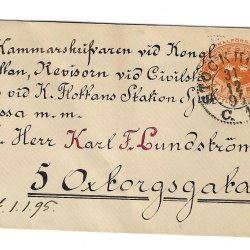 Kammarskrifvaren vid Kongl
ttan, Revisorn vid Civilst
vid K. Flottans Station Sj
assa m. m.
Herr Karl F. Lundström
5 Oxtorgsgata
1.1.95.
STOCKHOLM
31
12
C.